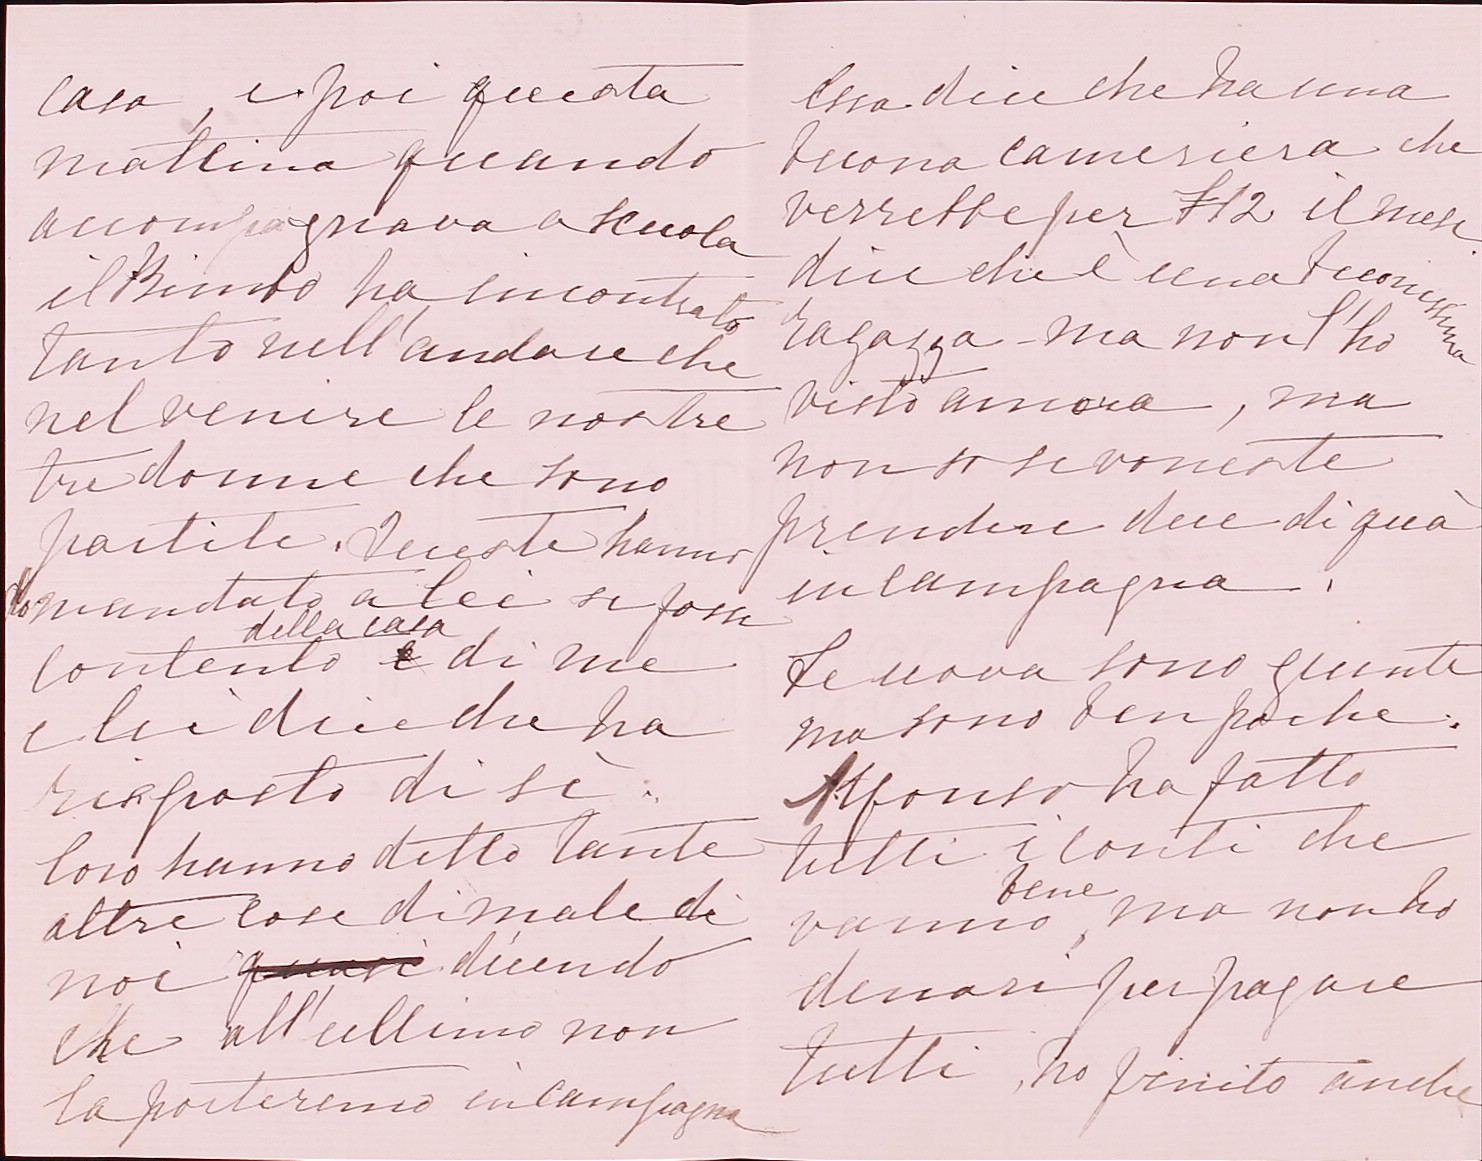 casa, e poi questa
mattina quando
accompagnava a scuola
il Bimbo ha incontrato
tanto nell'andare che
nel venire le nostre
tre donne che sono
partite. Queste hanno
domandato a lei se fosse
della casa
contento e di me
e lei dice che ha
risposto di sì.
Loro hanno detto tante
altre cose di male di
noi quasi dicendo
che all'ultimo non
la porteremo in campagna
Essa dice che ha una
buona cameriera che
verrebbe per £12 il mese
dice che è una buonissima
ragazza - ma non l'ho
visto ancora, ma
non so se voneste
prendere due di quà
in campagna.
Le uova sono giunte
ma sono ben poche.
Alfonso ha fatto
tutti i conti che
bene
vanno, ma non ho
denari per pagare
tutti, ho finito anche